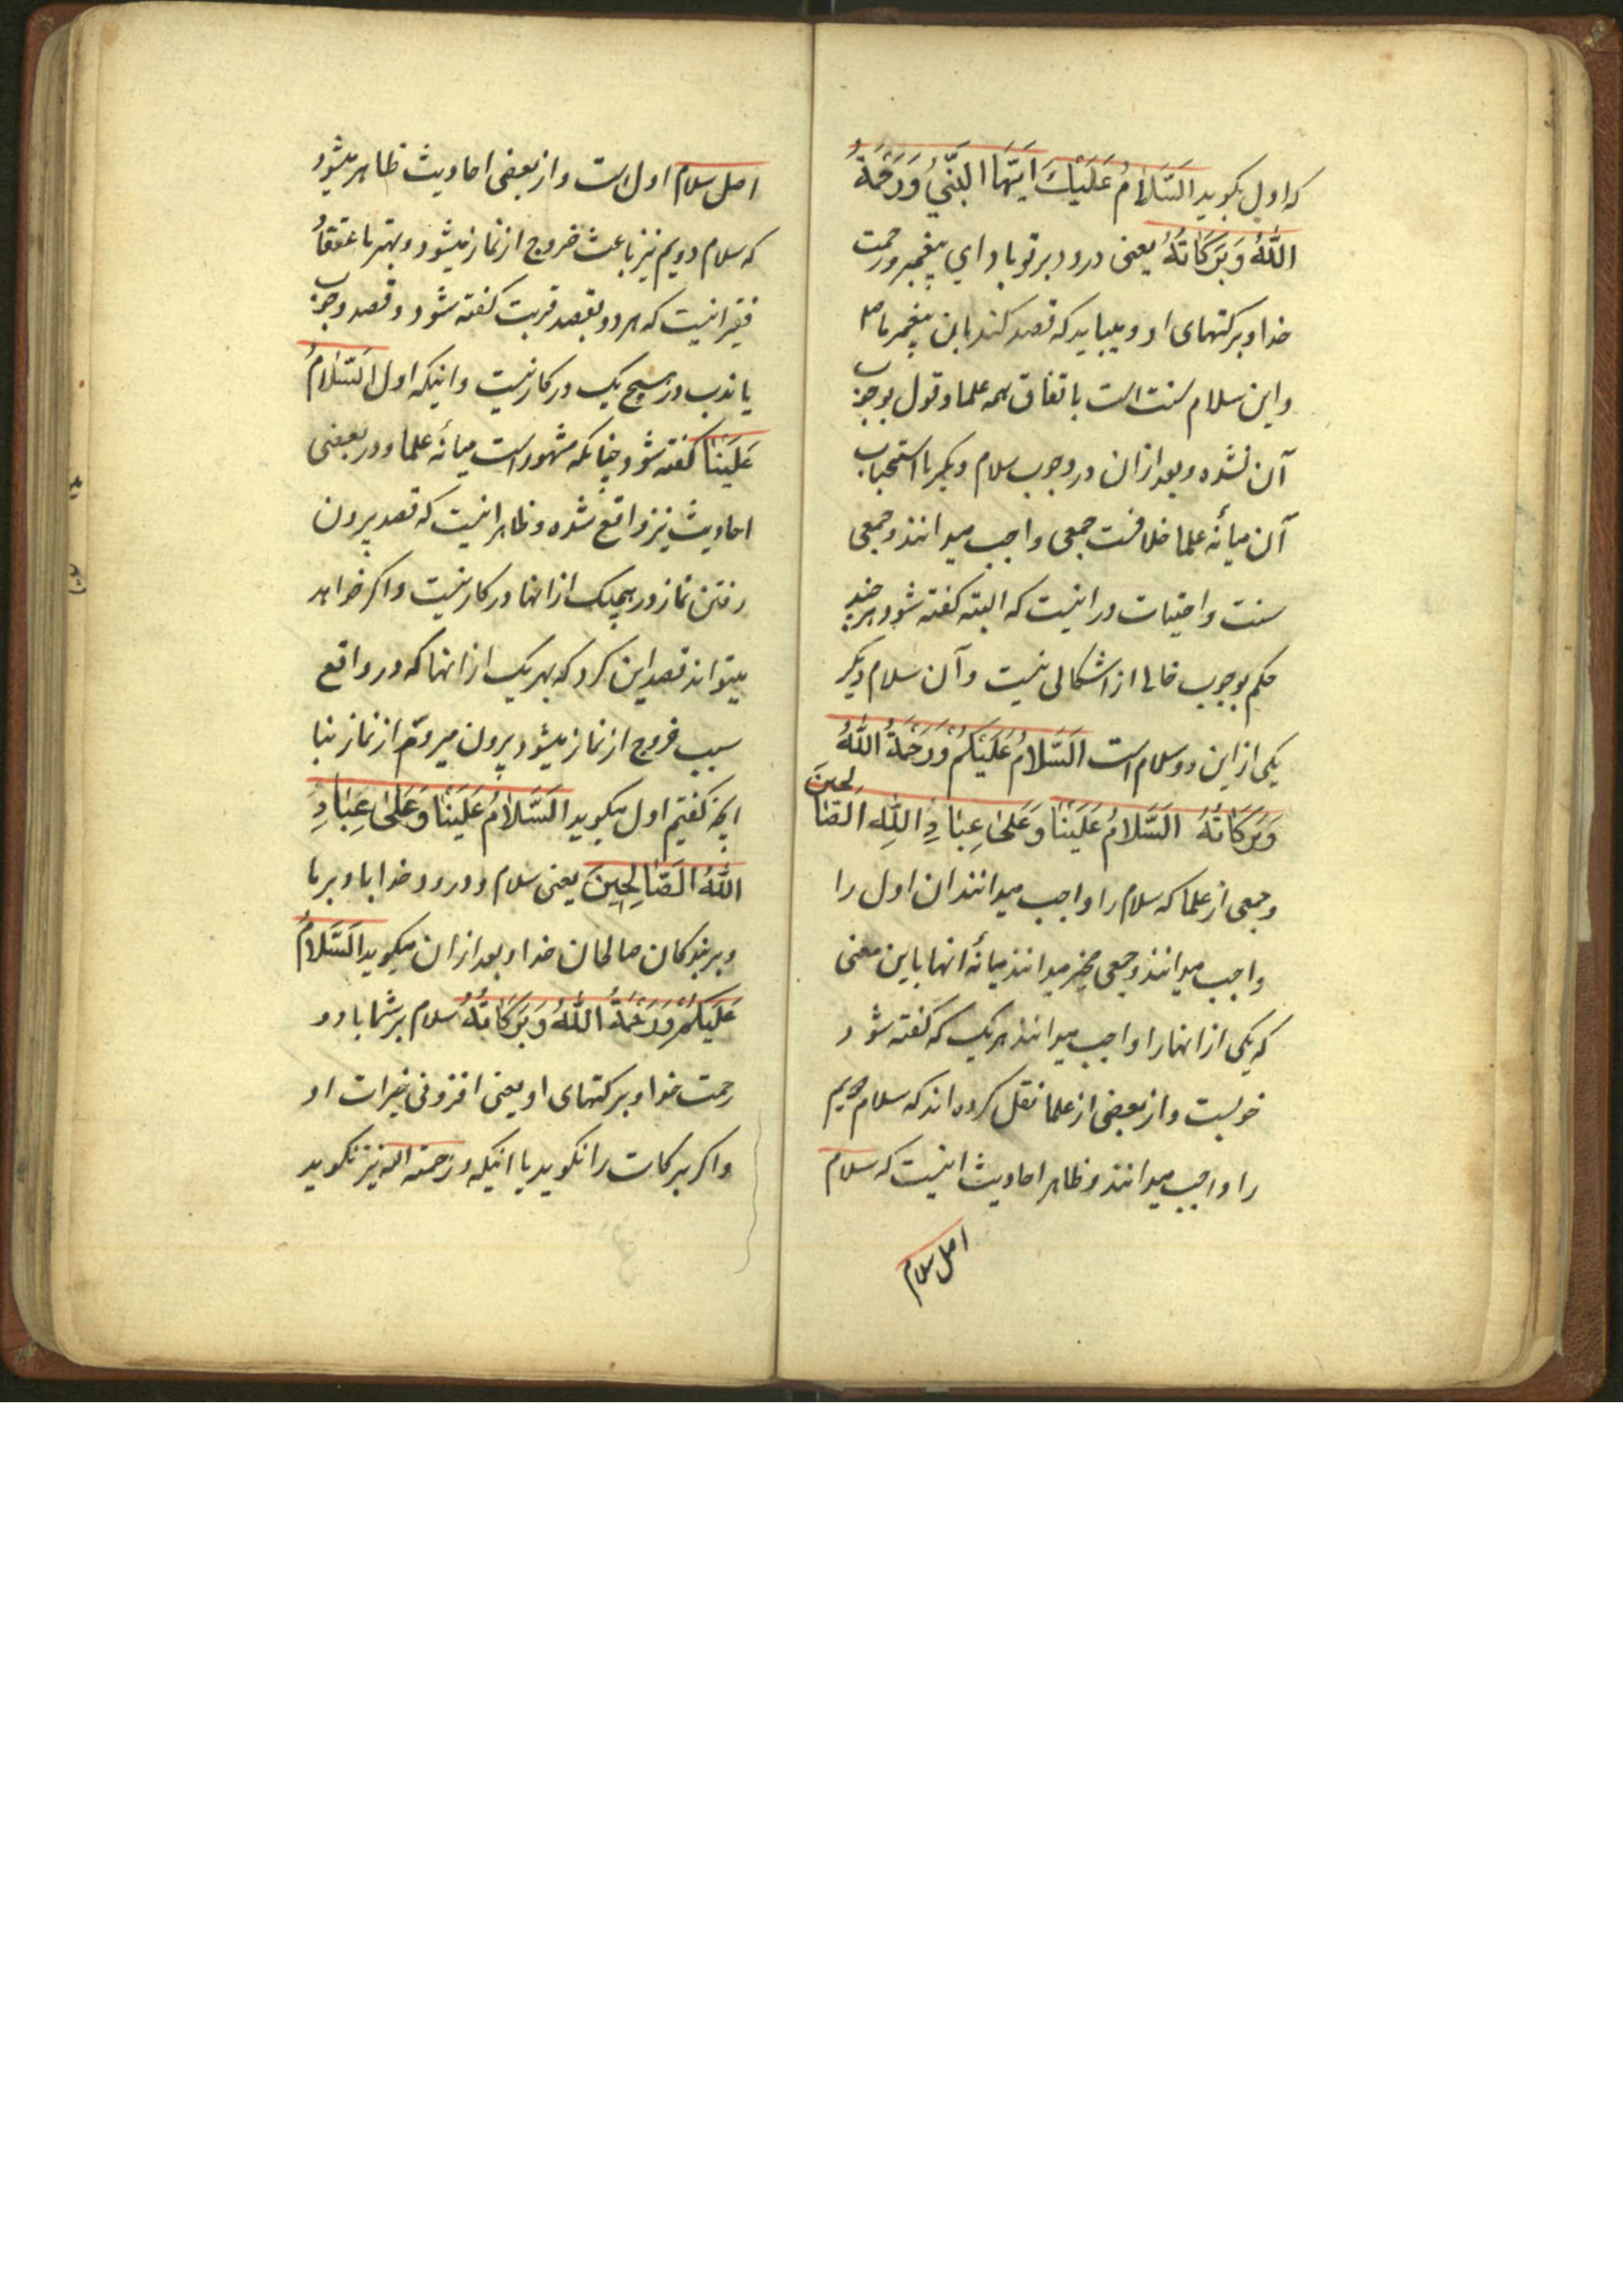 که اول بکوید اَلسَّلامُ عَلَیْكَ اَیُّهَا النَّبِيُّ وَرَحْمَةُ
اللّٰهِ وَبَرَکَاتُهُ یعنی درود بر تو باد ای پیغمبر و رحمت
خدا و برکتهای او و میباید که قصد کند باین پیغمبر ما
و این سلام سنت است باتفاق همه علما و قول بوجوب
آن نشده و بعد ازان در وجوب سلام دیکر یا استحباب
آن میانه علما خلافست جمعی واجب میدانند و جمعی
سنت و احتیاط در اینست که البته کفته شود هر چند
حکم بوجوب خالی از اشکالی نیست و آن سلام دیکر
یکی از این دو سلام است اَلسَّلامُ عَلَیْکُمْ وَرَحْمَةُ اللّٰهِ
وَبَرَکَاتُهُ اَلسَّلامُ عَلَیْنٰا وَعَلیٰ عِبٰادِ اللّٰهِ الصّٰالِحینَ
و جمعی از علما که سلام را واجب میدانند ان اول را
واجب میدانند و جمعی مخیر میدانند میانه انها باین معنی
که یکی از انها را واجب میدانند هر یک که کفته شود
خوبست و از بعضی از علما نقل کرده اند که سلام دویم
را واجب میدانند و ظاهر احادیث اینست که سلام
اصل سلام
اصل سلام اول است و از بعضی احادیث ظاهر میشود
که سلام دویم نیز باعث خروج از نماز میشود و بهتر باعتقاد
فقیر اینست که هر دو بقصد قربت کفته شود و قصد وجوب
یا ندب در هیچ یک در کار نیست و اینکه اول اَلسَّلامُ
عَلَیْنٰا کفته شود چنانکه مشهور است میانه علما و در بعضی
احادیث نیز واقع شده و ظاهر اینست که قصد بیرون
رفتن نماز در هیچیک از انها در کار نیست و اکر خواهد
میتواند قصد این کرد که بهر یک از انها که در واقع
سبب خروج از نماز میشود بیرون میروم از نماز بنا
بانچه کفتیم اول میکوید اَلسَّلامُ عَلَیْنٰا وَعَلیٰ عِبٰادِ
اللّٰهِ الصّٰالِحِینَ یعنی سلام و درود خدا باد بر ما
و بر بندکان صالحان خدا و بعد ازان میکوید اَلسَّلامُ
عَلَیْکُمْ وَرَحْمَةُ اللّٰهِ وَبَرَکَاتُهُ سلام بر شما باد و
رحمت خدا و برکتهای او یعنی افزونی خیرات او
و اکر برکات را نکوید یا اینکه و رحمة الله نیز نکوید